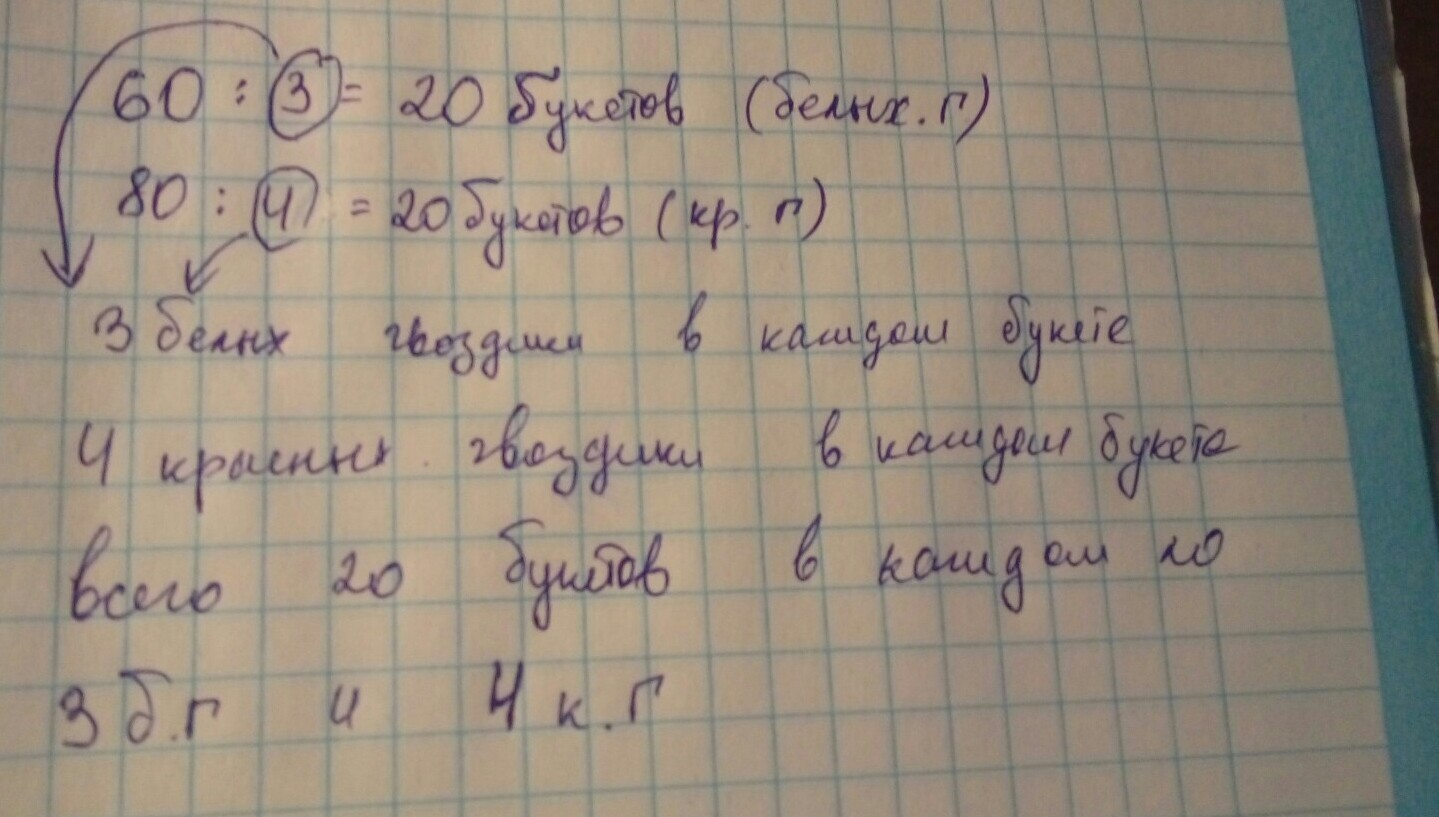 60 : 3 = 20 букетов (белых. г)
80 : 4 = 20 букетов (кр. г)
3 белых гвоздики в каждом букете
4 красных. гвоздики в каждом букете
всего 20 букетов в каждом по
3 б.г и 4 к.г